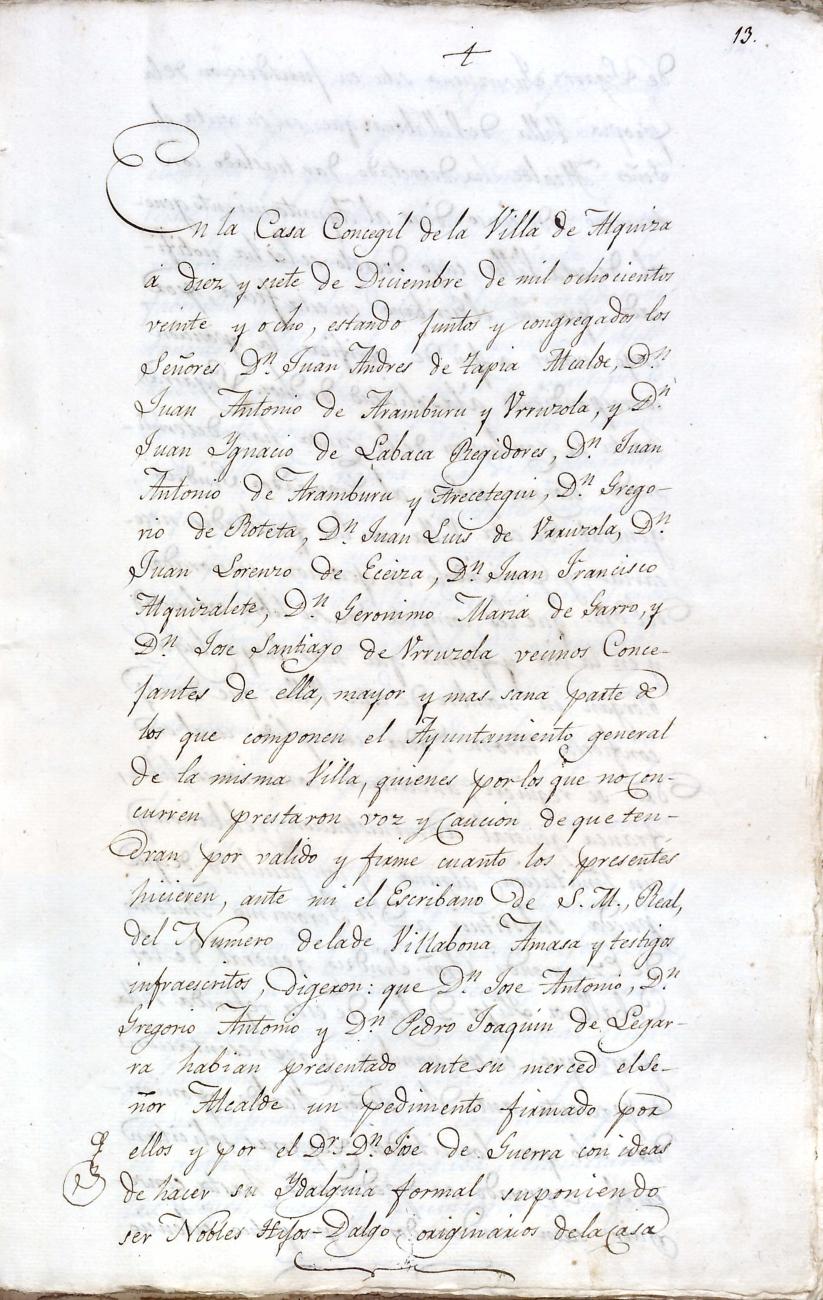 13.
En la Casa Concegil de la Villa de Alquiza
á diez y siete de Diciembre de mil ochocientos
veinte y ocho, estando juntos y congregados los
Señores Dn. Juan Andres de Tapia Alcalde, Dn.
Juan Antonio de Aramburu y Vrruzola, y Dn.
Juan Ygnacio de Labaca Regidores, Dn. Juan
Antonio de Aramburu y Arecetegui, Dn. Grego-
rio de Roteta, Dn. Juan Luis de Vrruzola, Dn.
Juan Lorenzo de Eceiza, Dn. Juan Francisco
Alquizalete, Dn. Geronimo Maria de Garro, y
Dn. Jose Santiago de Vrruzola vecinos Conce-
jantes de ella, mayor y mas sana parte de
los que componen el Ayuntamiento general
de la misma Villa, quienes por los que no con-
curren prestaron voz y caucion de que ten-
dran por valido y firme cuanto los presentes
hicieren, ante mi el Escribano de S. M., Real,
del Numero de la de Villabona Amasa y testigos
infraescritos, digeron: que Dn. Jose Antonio, Dn.
Gregorio Antonio y Dn. Pedro Joaquin de Legar-
ra habian presentado ante su merced el Se-
ñor Alcalde un pedimento firmado por
ellos y por el Dr. Dn. Jose de Guerra con ideas
de hacer su Ydalguia formal suponiendo
ser Nobles Hijos-Dalgo originarios de la Casa